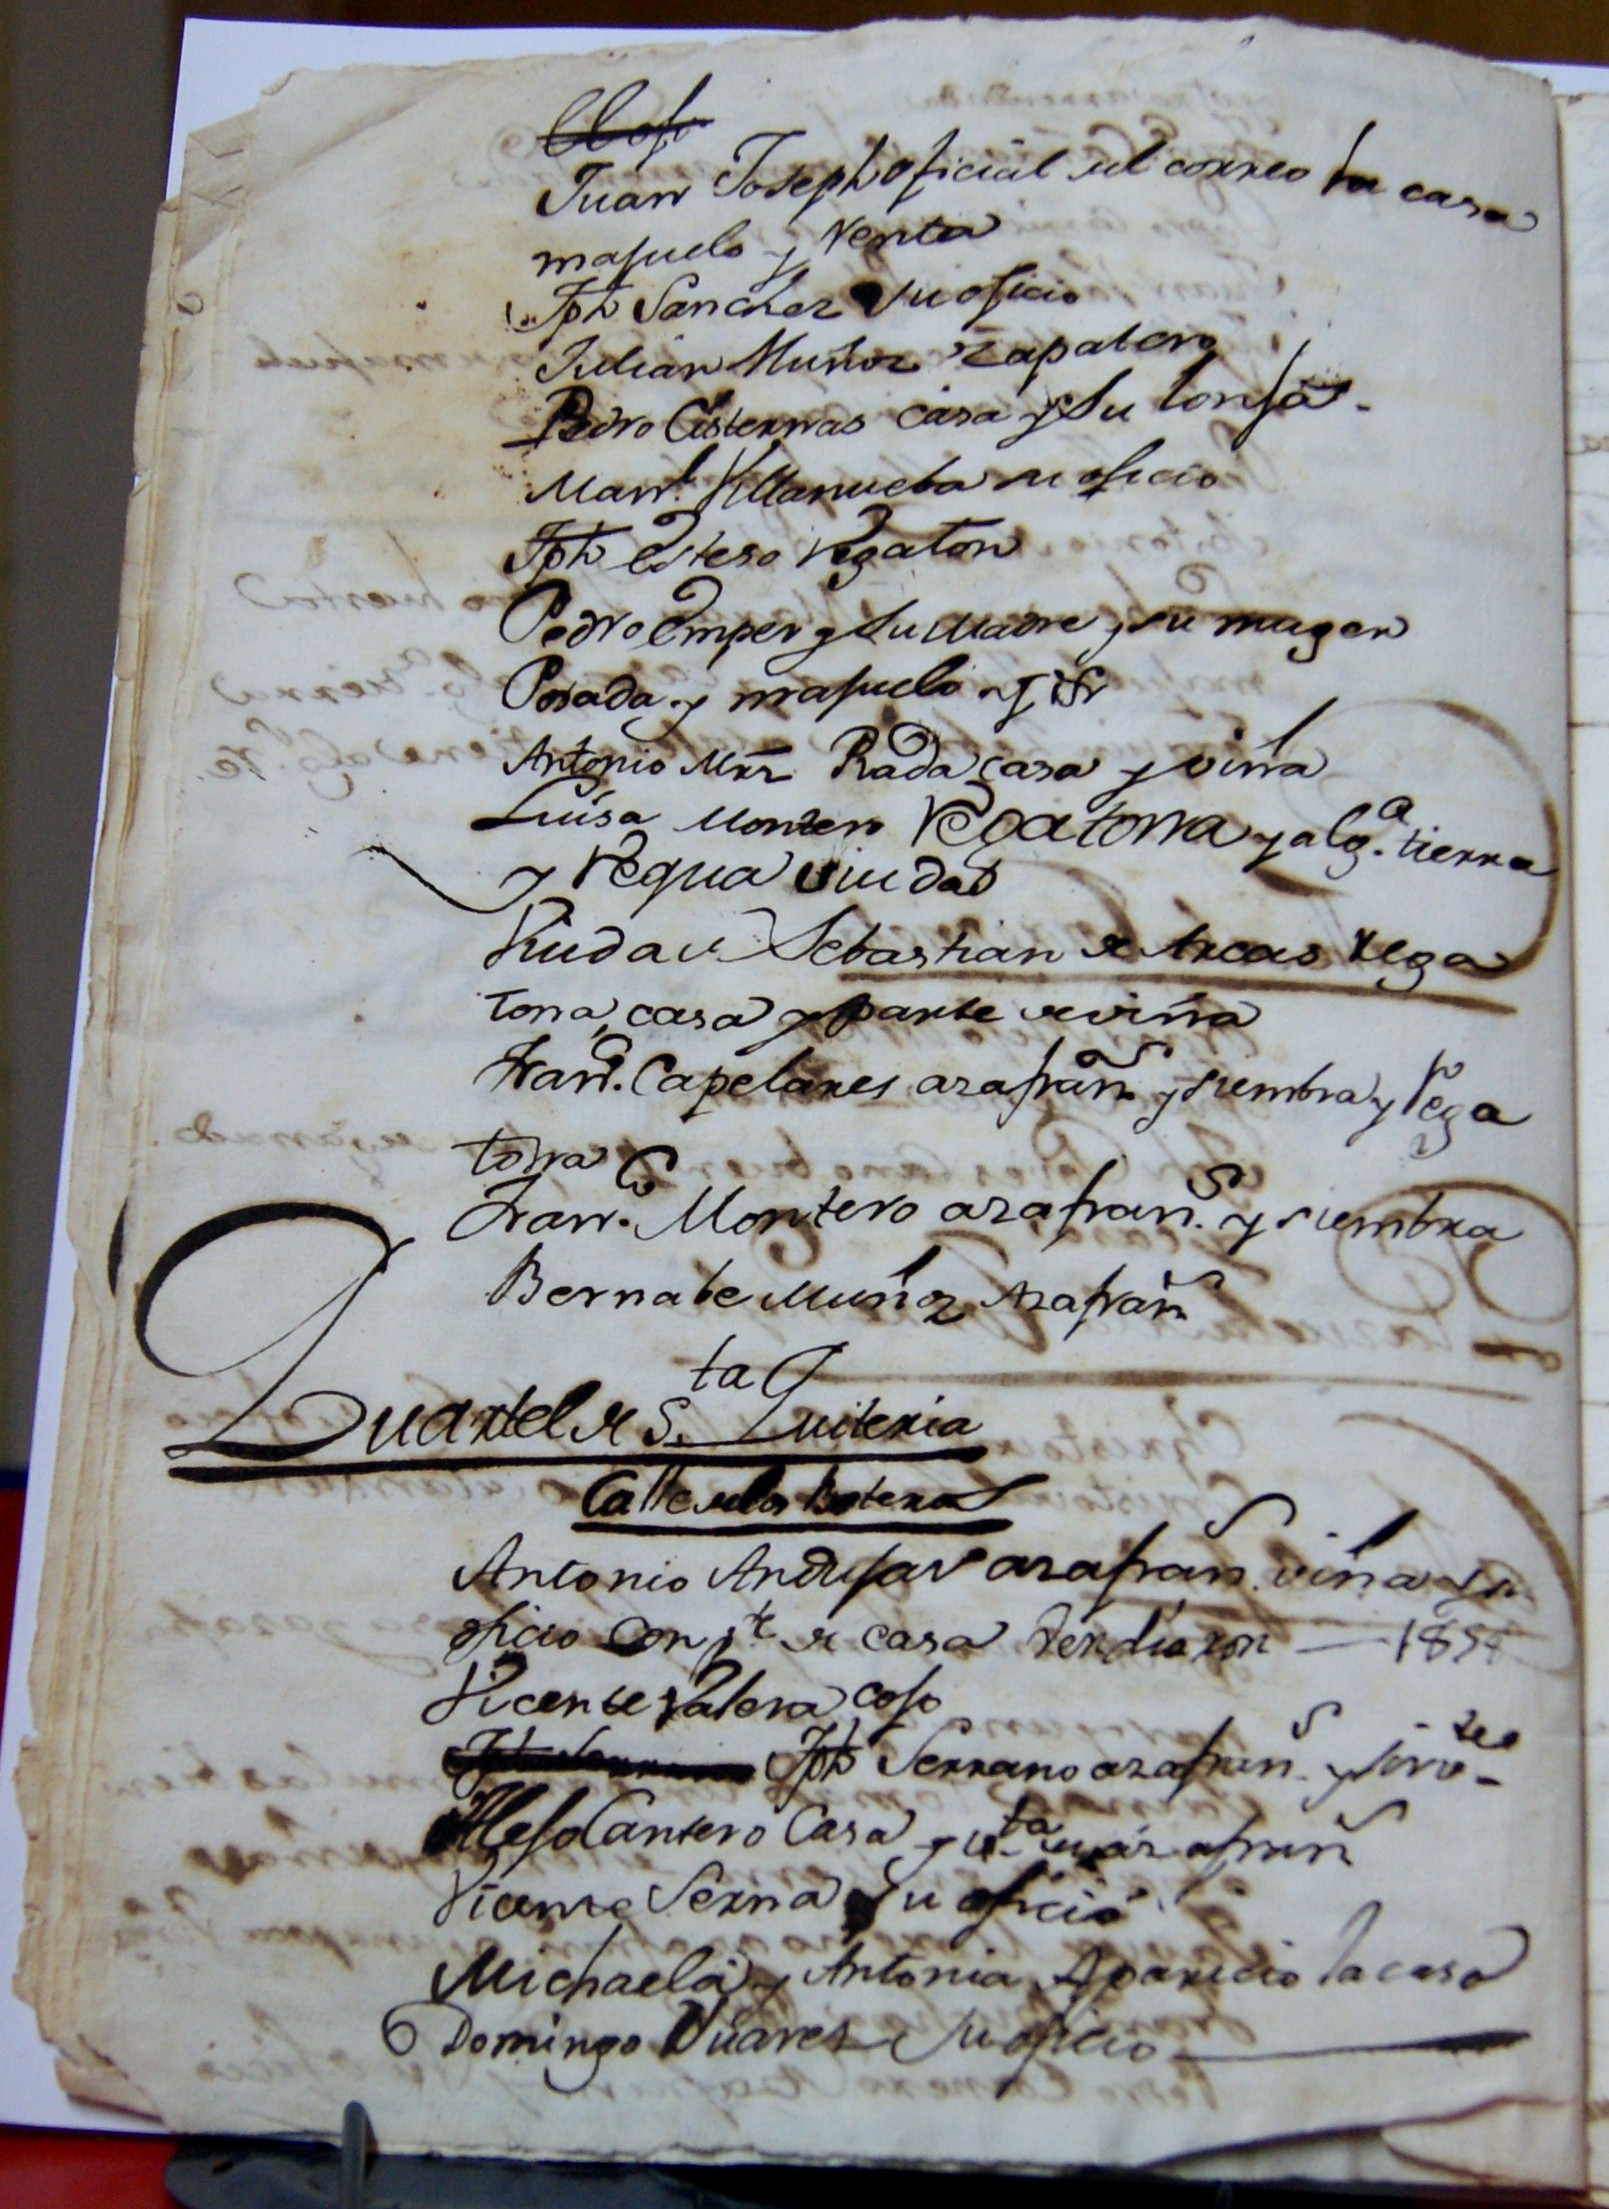 Juan Joseph oficial del correo la casa
majuelo y Venta
Jph Sanchez su oficio
Julian Muñoz zapatero
Pedro Cisternas casa y su lonja
Man.l Villanueba su oficio
Jph Esteso Regaton
Pedro Emper y su Madre y su muger
Posada y majuelo
Antonio Mrz Rada casa y viña
Luisa Montero Regatona y alg.a tierra
y Yegua viuda
Viuda de Sebastian de Arcas Rega
tona, casa y parte de viña
Fran.co Capelares azafran y siembra y Rega
tona
Fran.co Montero azafran. y siembra
Bernabe Muñoz Azafran
Quartel de S.ta Quiteria
Calle de los Boteros
Antonio Andujar azafran. viña y su
oficio con p.te de casa Vendieron — 185
Vicente Valera cojo
Jph Serrano azafran. y
Alejo Cantero Casa y azafran
Vicente Serna su oficio
Michaela y Antonia Aparicio la casa
Domingo Suarez su oficio